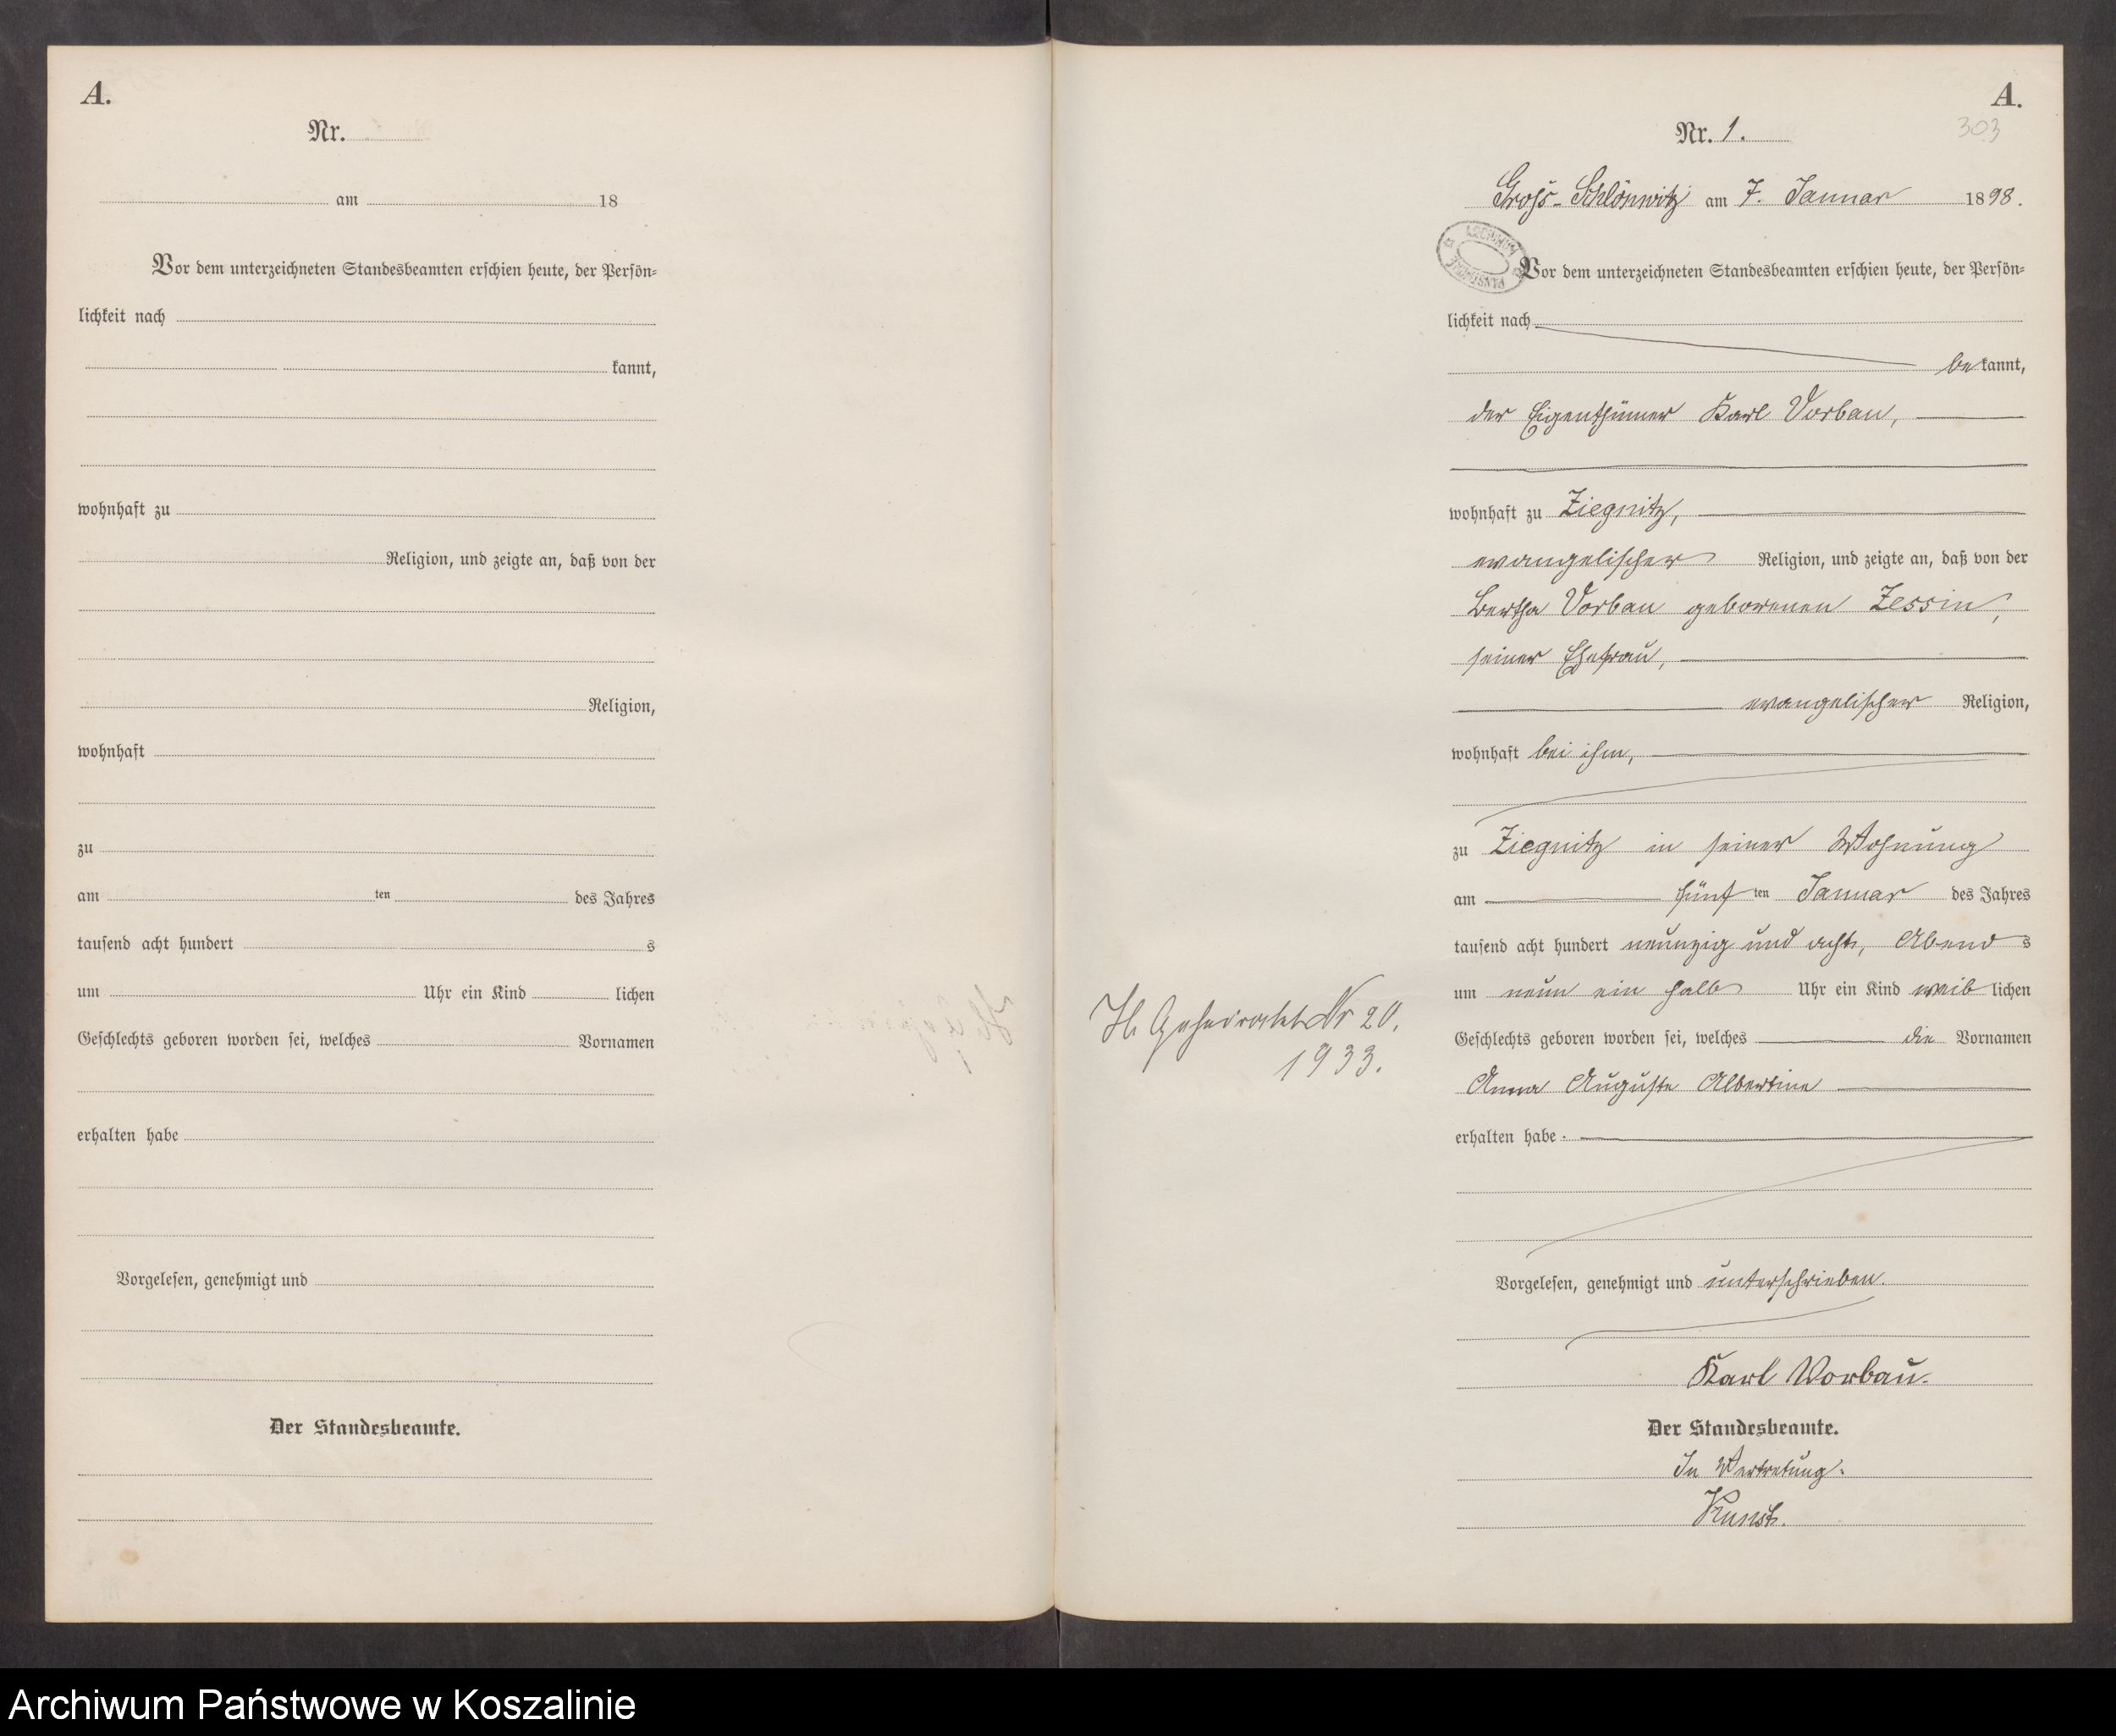 A.
Nr.
am 18
Vor dem unterzeichneten Standesbeamten erschien heute, der Persön=
lichkeit nach
kannt,
wohnhaft zu
Religion, und zeigte an, daß von der
Religion,
wohnhaft
zu
am ten des Jahres
tausend acht hundert s
um Uhr ein Kind lichen
Geschlechts geboren worden sei, welches Vornamen
erhalten habe
Vorgelesen, genehmigt und
Der Standesbeamte.
A.
303
Nr. 1.
Groß-Schlönwitz am 7. Januar 1898.
Vor dem unterzeichneten Standesbeamten erschien heute, der Persön=
lichkeit nach
bekannt,
der Eigenthümer Karl Vorbau,
wohnhaft zu Ziegnitz,
evangelischer Religion, und zeigte an, daß von der
Bertha Vorbau geborenen Zessin,
seiner Ehefrau,
evangelischer Religion,
wohnhaft bei ihm,
zu Ziegnitz in seiner Wohnung
am fünf ten Januar des Jahres
tausend acht hundert neunzig und acht, Abend s
um neun ein halb Uhr ein Kind weib lichen
Geschlechts geboren worden sei, welches die Vornamen
Anna Auguste Albertine
erhalten habe.
Vorgelesen, genehmigt und unterschrieben.
Karl Vorbau.
Der Standesbeamte.
In Vertretung.
Kunst.
Geheiratet Nr 20.
1933.
Archiwum Państwowe w Koszalinie